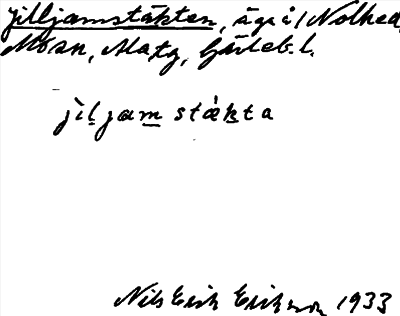 Jilljamstäkten, äga å / Nolhed,
Mosn, Matg, Gärleb. l.
jìljam stákta
Nils Erik Erikson 1933